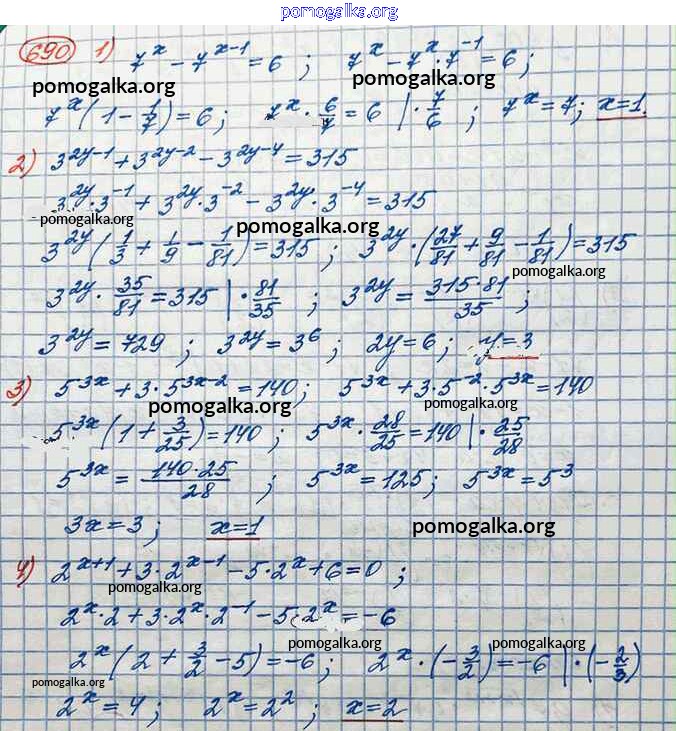 pomogalka.org
690 1) 7^x - 7^(x-1) = 6 ; 7^x - 7^x · 7^(-1) = 6 ;
pomogalka.org pomogalka.org
7^x (1 - 1/7) = 6 ; 7^x · 6/7 = 6 | · 7/6 ; 7^x = 7; x=1.
2) 3^(2y-1) + 3^(2y-2) - 3^(2y-4) = 315
3^(2y) · 3^(-1) + 3^(2y) · 3^(-2) - 3^(2y) · 3^(-4) = 315
pomogalka.org pomogalka.org
3^(2y) (1/3 + 1/9 - 1/81) = 315 ; 3^(2y) · (27/81 + 9/81 - 1/81) = 315
pomogalka.org
3^(2y) · 35/81 = 315 | · 81/35 ; 3^(2y) = (315·81)/35 ;
3^(2y) = 729 ; 3^(2y) = 3^6 ; 2y = 6 ; y = 3
3) 5^(3x) + 3 · 5^(3x-2) = 140 ; 5^(3x) + 3 · 5^(-2) · 5^(3x) = 140
pomogalka.org pomogalka.org
5^(3x) (1 + 3/25) = 140 ; 5^(3x) · 28/25 = 140 | · 25/28
5^(3x) = (140·25)/28 ; 5^(3x) = 125 ; 5^(3x) = 5^3
3x = 3 ; x=1
pomogalka.org
4) 2^(x+1) + 3 · 2^(x-1) - 5 · 2^x + 6 = 0 ;
pomogalka.org
2^x · 2 + 3 · 2^x · 2^(-1) - 5 · 2^x = -6
pomogalka.org pomogalka.org
2^x (2 + 3/2 - 5) = -6 ; 2^x · (-3/2) = -6 | · (-2/3)
pomogalka.org pomogalka.org
2^x = 4 ; 2^x = 2^2 ; x=2